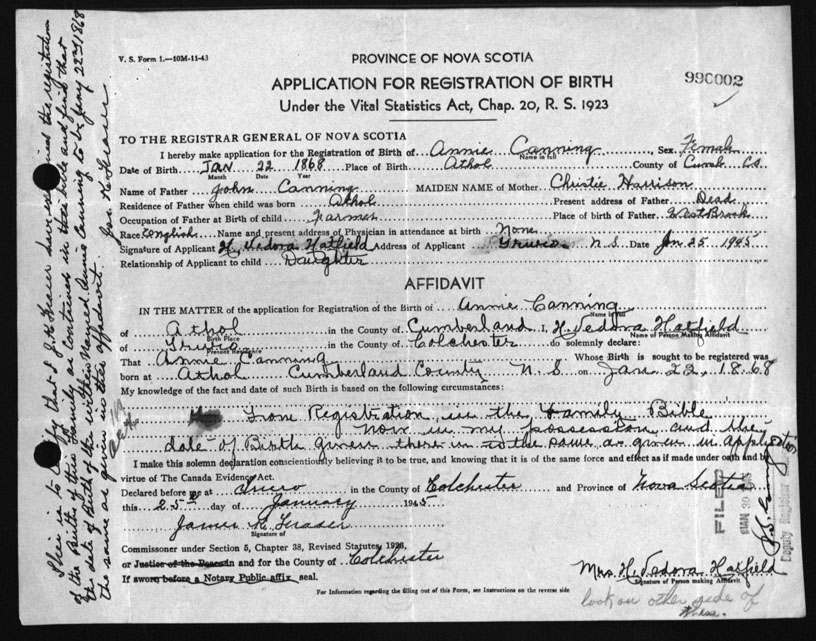 V. S. Form 1.—10M-11-43
PROVINCE OF NOVA SCOTIA
990002
APPLICATION FOR REGISTRATION OF BIRTH
Under the Vital Statistics Act, Chap. 20, R. S. 1923
TO THE REGISTRAR GENERAL OF NOVA SCOTIA
I hereby make application for the Registration of Birth of Annie Canning, Sex Female
Name in full
Date of Birth Jan 22 1868 Place of Birth Athol County of Cumb Co.
Month Date Year
Name of Father John Canning MAIDEN NAME of Mother Christie Harrison
Residence of Father when child was born Athol Present address of Father Dead
Occupation of Father at Birth of child Farmer Place of birth of Father West Brook
Race English Name and present address of Physician in attendance at birth None
Signature of Applicant H. Vedora Hatfield Address of Applicant Truro N S Date Jan 25 1945
Relationship of Applicant to child Daughter
AFFIDAVIT
IN THE MATTER of the application for Registration of the Birth of Annie Canning
Name in full
of Athol in the County of Cumberland I, H. Vedora Hatfield
Birth Place Name of Person Making Affidavit
of Truro in the County of Colchester do solemnly declare:
Present Residence
That Annie Canning Whose Birth is sought to be registered was
born at Athol Cumberland County N S on Jan 22, 1868
My knowledge of the fact and date of such Birth is based on the following circumstances:
From Registration in the Family Bible
now in my possession and the
date of Birth given there in is the same as given in
I make this solemn declaration conscientiously believing it to be true, and knowing that it is of the same force and effect as if made under oath and by
virtue of The Canada Evidence Act.
Declared before me at Truro in the County of Colchester and Province of Nova Scotia
this 25th day of January 1945
James K. Fraser
Signature of
Commissioner under Section 5, Chapter 38, Revised Statutes, 1923,
or Justice of the Peace in and for the County of Colchester
If sworn before a Notary Public affix seal.
Mrs H. Vedora Hatfield
Signature of Person making Affidavit
For Information regarding the filling out of this Form, see Instructions on the reverse side
look on other side of
This is to certify that I J. K. Fraser have examined the registration
of the Births of this Family as contained in their bible and find that
the date of birth of the within Named Annie Canning to be Jany 22nd 1868
the same as given in this affidavit. Jas. K. Fraser
FILED
JAN 30 1945
Deputy Registrar